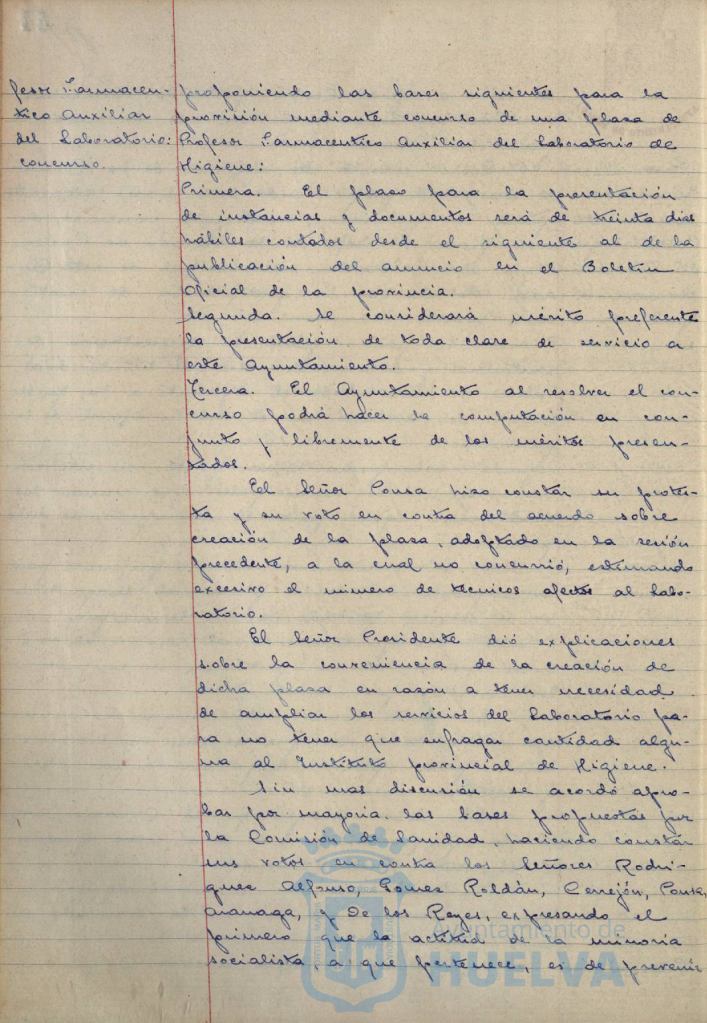 fesor Farmaceu-
tico Auxiliar
del Laboratorio:
concurso.
proponiendo las bases siguientes para la
provisión mediante concurso de una plaza de
Profesor Farmaceutico Auxiliar del Laboratorio de
Higiene:
Primera. El plazo para la presentación
de instancias y documentos será de treinta dias
hábiles contados desde el siguiente al de la
publicación del anuncio en el Boletin
Oficial de la provincia.
Segunda. Se considerará mérito preferente
la presentación de toda clase de servicio a
este Ayuntamiento.
Tercera. El Ayuntamiento al resolver el con-
curso podrá hacer la computación en con-
junto y libremente de los méritos presen-
tados.
El Señor Ponsa hizo constar su protes-
ta y su voto en contra del acuerdo sobre
creación de la plaza, adoptado en la sesión
precedente, a la cual no concurrió, estimando
excesivo el número de técnicos afectos al Labo-
ratorio.
El Señor Presidente dió explicaciones
sobre la conveniencia de la creación de
dicha plaza en razón a tener necesidad
de ampliar los servicios del Laboratorio pa-
ra no tener que sufragar cantidad algu-
na al Instituto provincial de Higiene.
Sin mas discusión se acordó apro-
bar por mayoria las bases propuestas por
la Comisión de Sanidad, haciendo constar
sus votos en contra los Señores Rodri-
guez Alfonso, Gomez Roldán, Cerrejón, Ponsa,
Aranaga, y De los Reyes, expresando el
primero que la actitud de la minoria
socialista, a que pertenece, es de prevenir
Ayuntamiento de
HUELVA